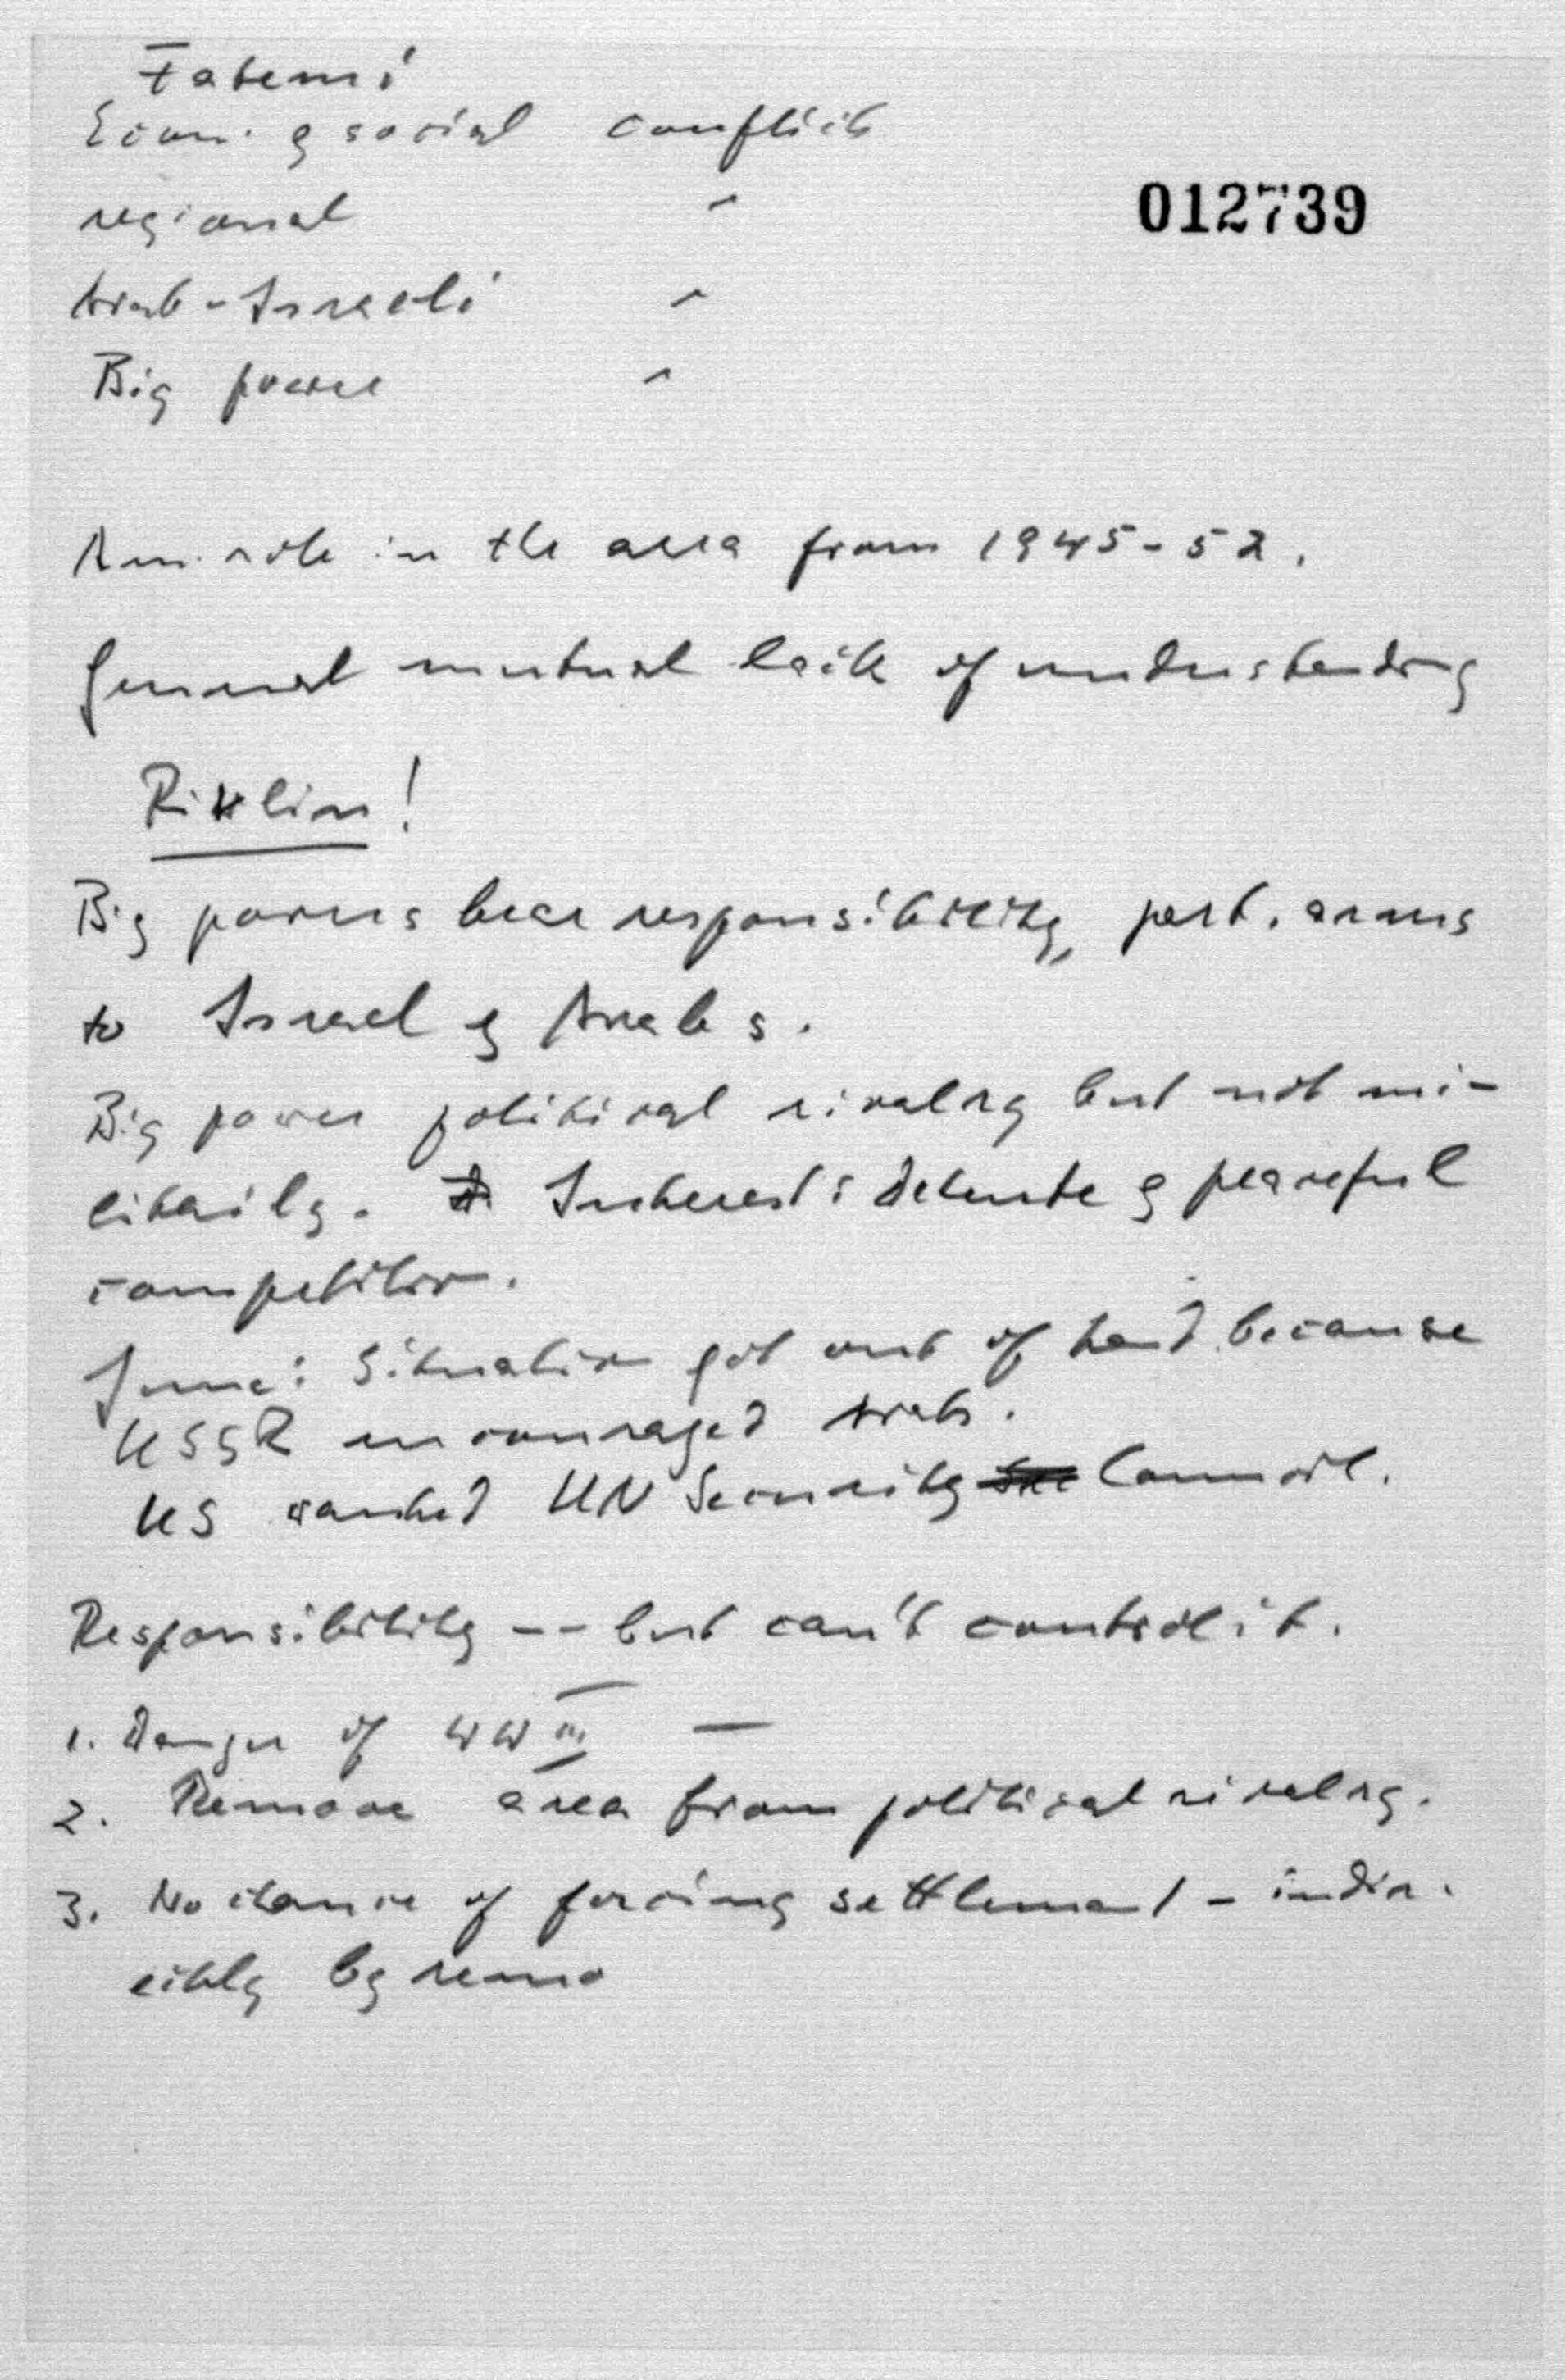 Fatemi
Econ. & social conflict
012739
regional "
Arab-Israeli "
Big power "
Am. role in the area from 1945-52.
General mutual lack of understanding
Ritlin!
Big powers bear responsibility, part. arms
to Israel & Arabs.
Big power political rivalry but not mi-
litarily. Interest: detente & peaceful
competition.
June: Situation got out of hand because
USSR encouraged Arabs.
US wanted UN Security Council.
Responsibility -- but can't control it.
1. Danger of WW III —
2. Remove area from political rivalry.
3. No chance of forcing settlement - indir.
ectly by remo